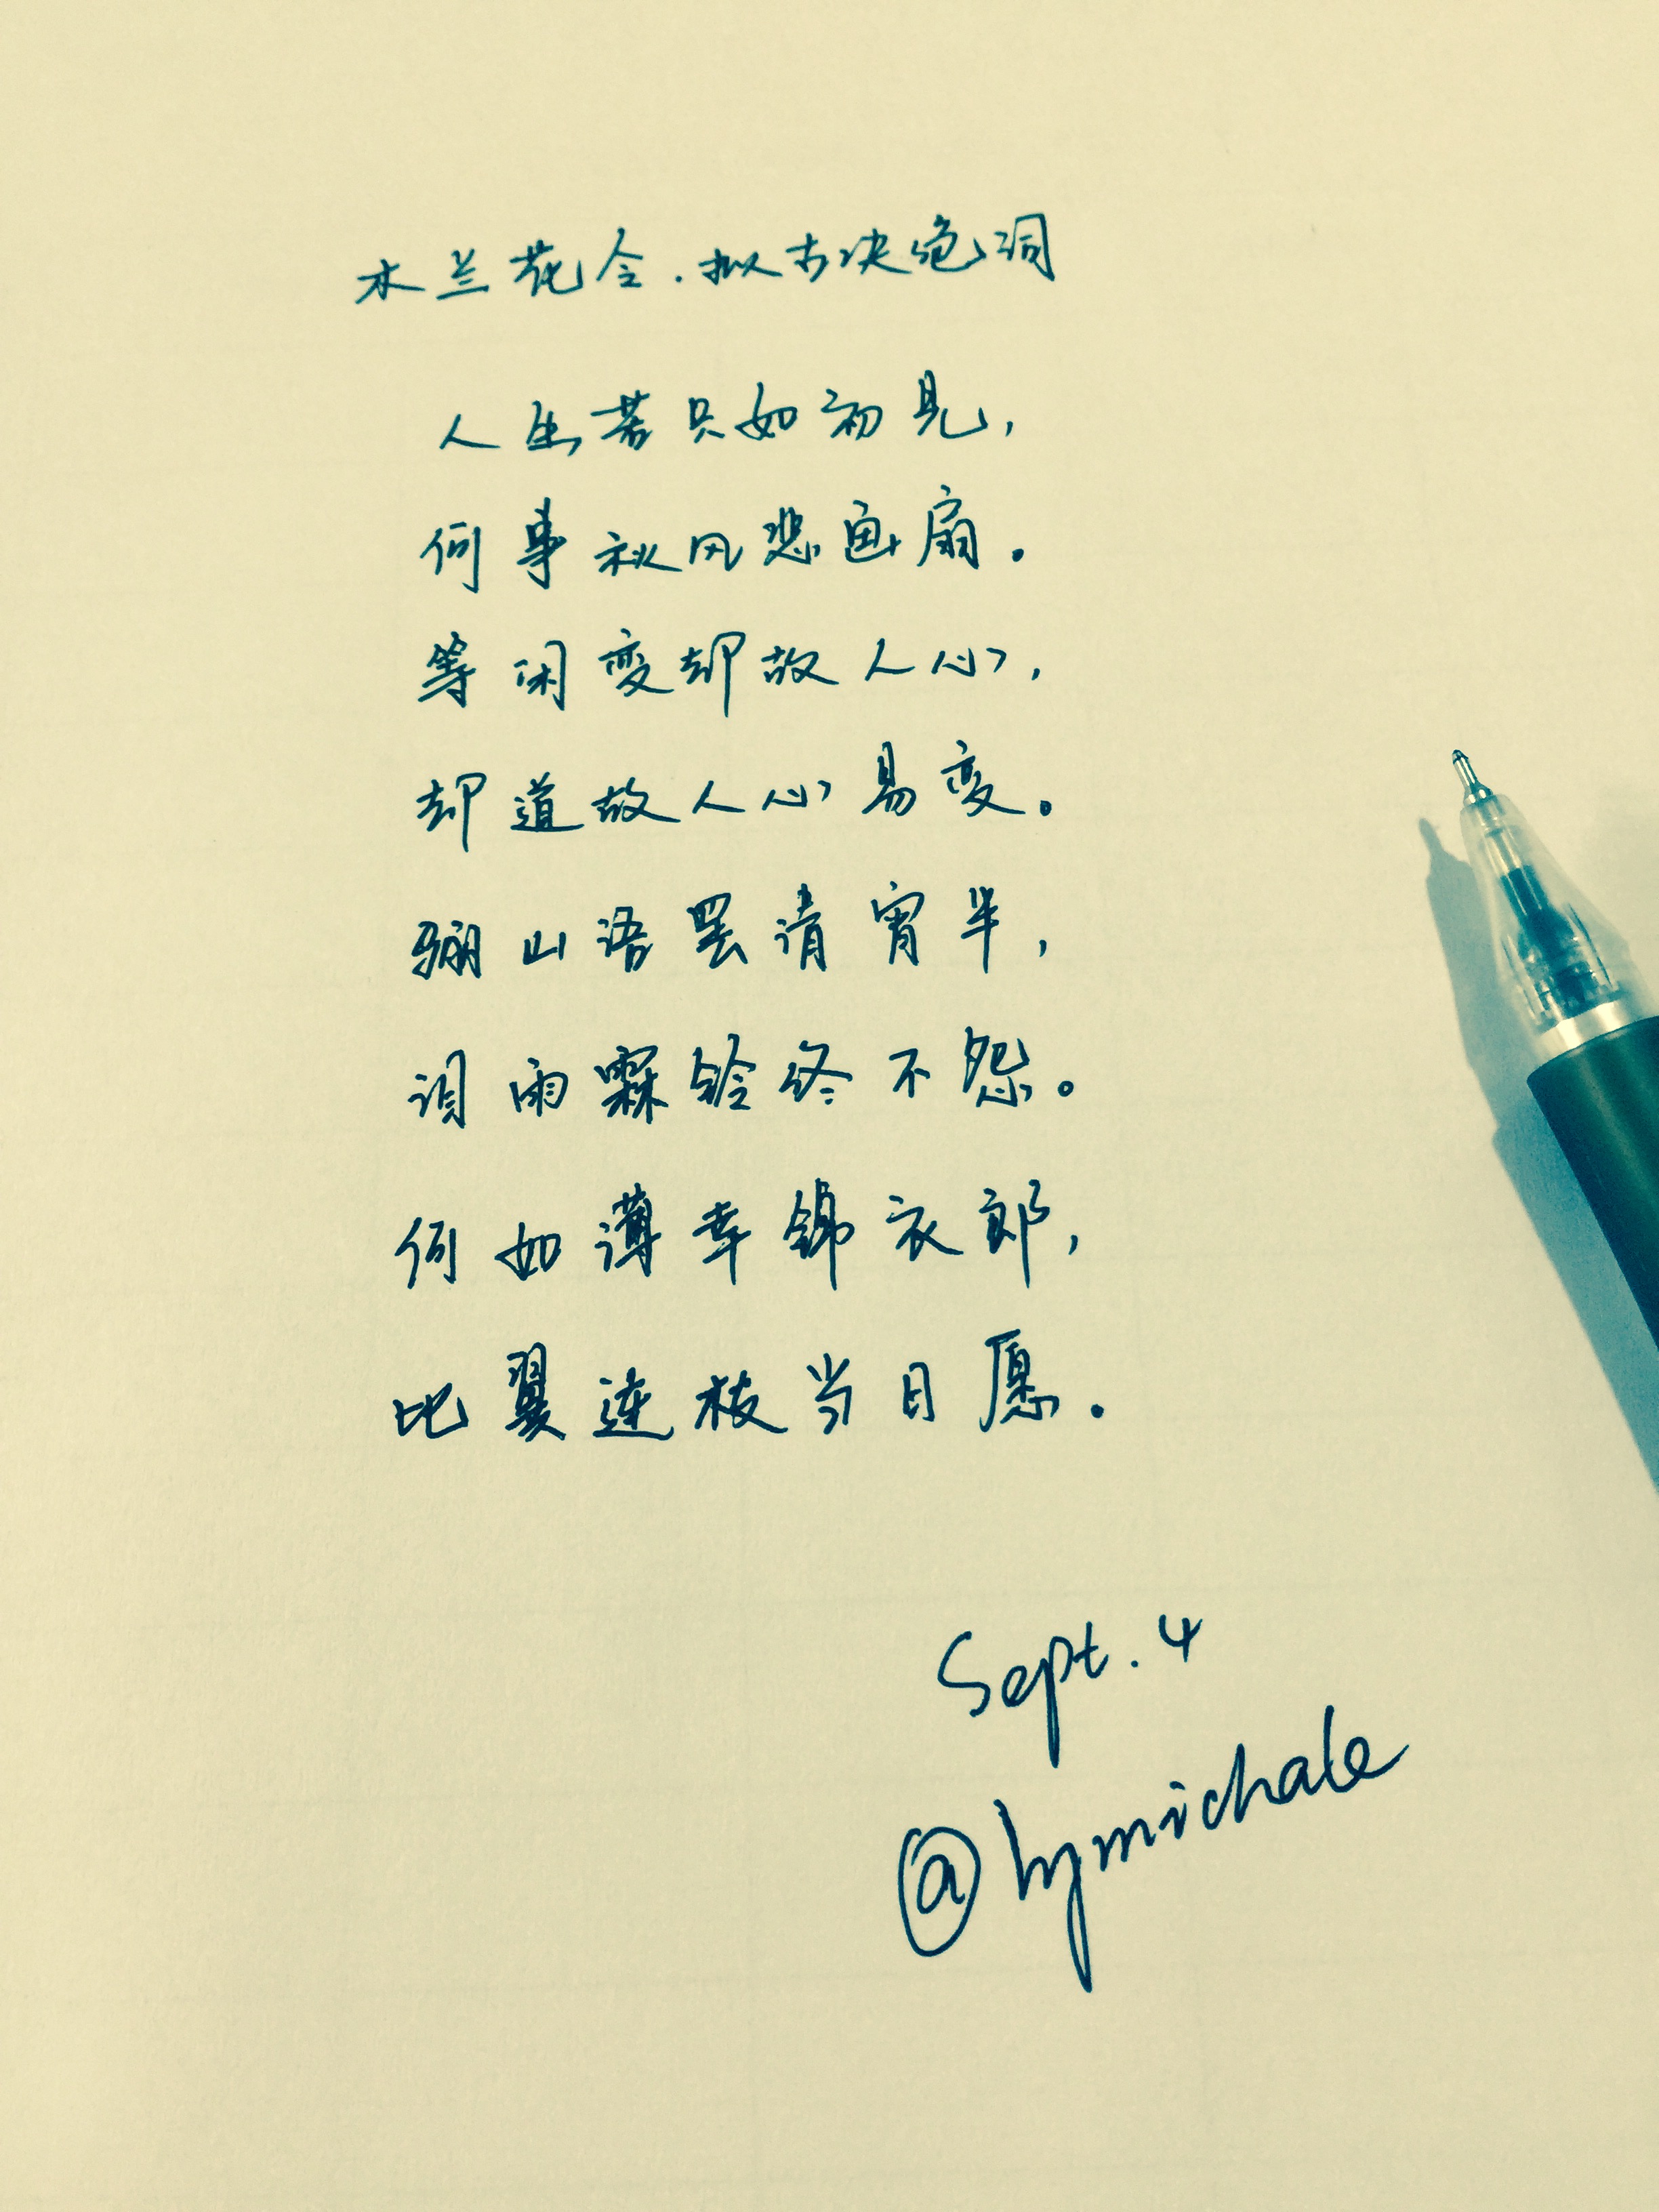 木兰花令.拟古决绝词
人生若只如初见,
何事秋风悲画扇。
等闲变却故人心,
却道故人心易变。
骊山语罢清宵半,
泪雨霖铃终不怨。
何如薄幸锦衣郎,
比翼连枝当日愿。
Sept. 4
@hymichale